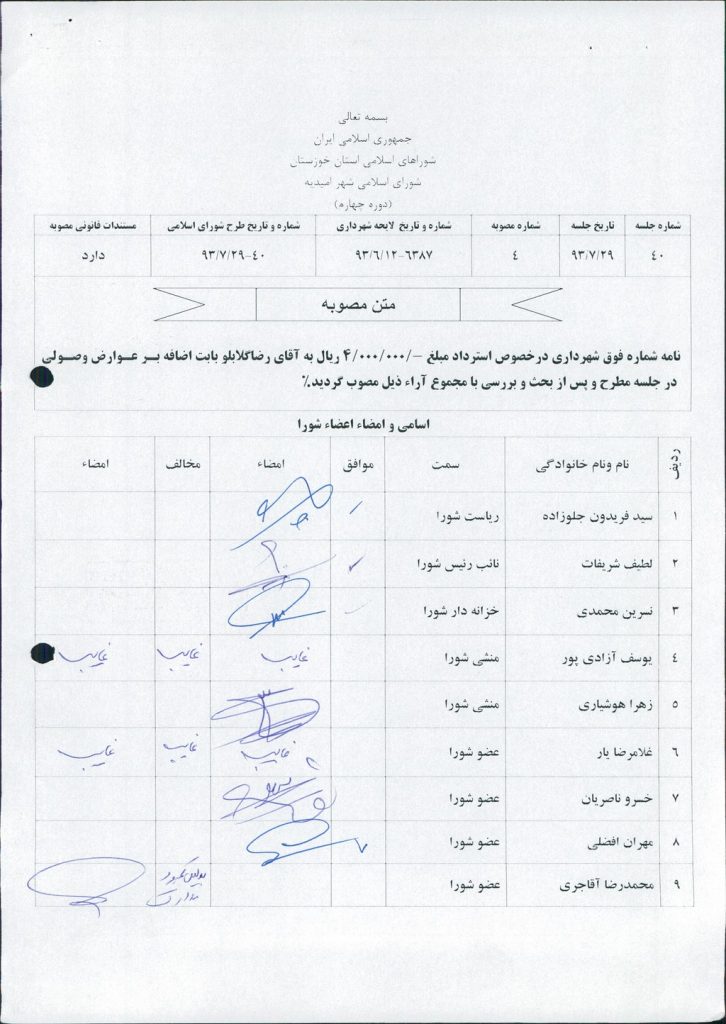 بسمه تعالی
جمهوری اسلامی ایران
شوراهای اسلامی استان خوزستان
شورای اسلامی شهر امیدیه
(دوره چهارم)
شماره جلسه تاریخ جلسه شماره مصوبه شماره و تاریخ لایحه شهرداری شماره و تاریخ طرح شورای اسلامی مستندات قانونی مصوبه
۴۰ ۹۳/۷/۲۹ ۴ ۶۳۸۷-۹۳/۶/۱۲ ۴۰-۹۳/۷/۲۹ دارد
متن مصوبه
نامه شماره فوق شهرداری درخصوص استرداد مبلغ -/۴/۰۰۰/۰۰۰ ریال به آقای رضاگلابلو بابت اضافه بر عوارض وصولی
در جلسه مطرح و پس از بحث و بررسی با مجموع آراء ذیل مصوب گردید.٪
اسامی و امضاء اعضاء شورا
ردیف نام ونام خانوادگی سمت موافق امضاء مخالف امضاء
۱ سید فریدون جلوزاده ریاست شورا
۲ لطیف شریفات نائب رئیس شورا
۳ نسرین محمدی خزانه دار شورا
۴ یوسف آزادی پور منشی شورا غایب غایب غایب
۵ زهرا هوشیاری منشی شورا
۶ غلامرضا یار عضو شورا غایب غایب غایب
۷ خسرو ناصریان عضو شورا
۸ مهران افضلی عضو شورا
۹ محمدرضا آقاجری عضو شورا